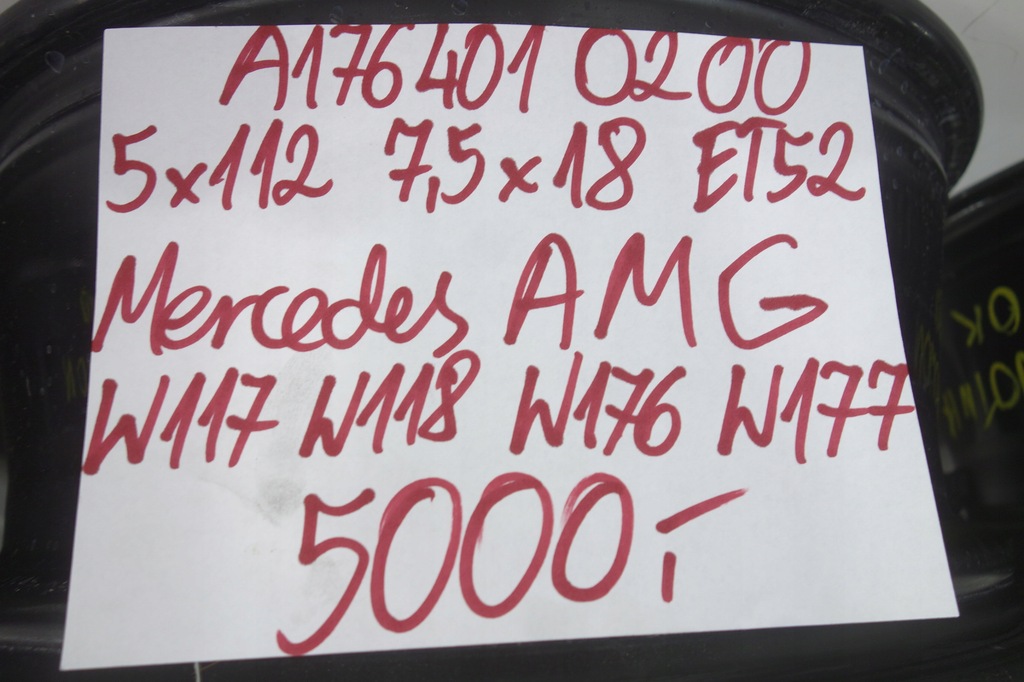 A176 401 02 00
5x112 7,5x18 ET52
Mercedes AMG
W117 W118 W176 W177
5000,-
OK